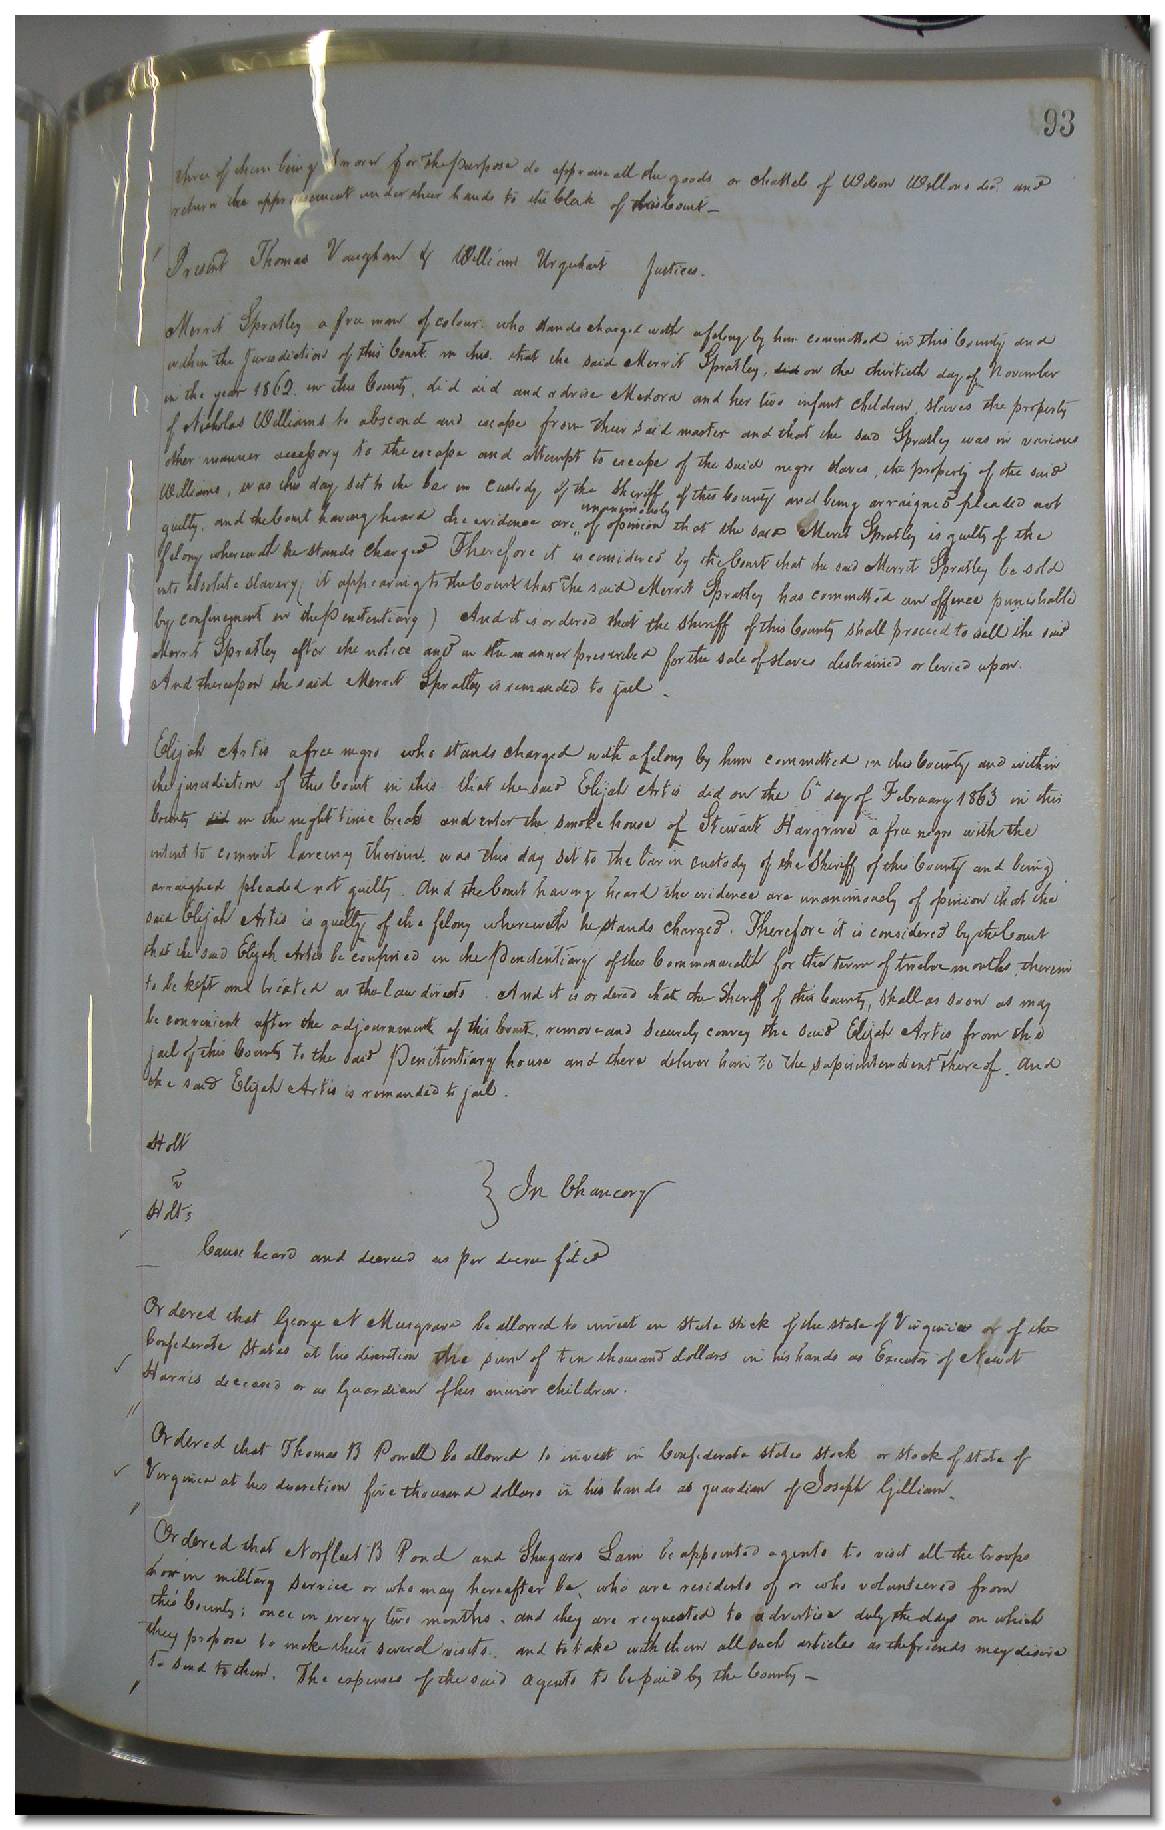 93
three of them being sworn for the purpose do appraise all the goods or chattels of Wilson Wellons decd. and
return the appraisement under their hands to the Clerk of this Court —
Present Thomas Vaughan & William Urquhart Justices.
Merrit Spratley a free man of colour who stands charged with a felony by him committed in this County and
within the jurisdiction of this Court in this. that the said Merrit Spratley, did on the thirtieth day of November
in the year 1862. in this County, did aid and advise Medora and her two infant children, slaves the property
of Nicholas Williams to abscond and escape from their said master and that the said Spratley was in various
other manner accessory to the escape and attempt to escape of the said negro slaves, the property of the said
Williams, was this day set to the bar in custody of the Sheriff of this County and being arraigned pleaded not
guilty. and the Court having heard the evidence are unanimously of opinion that the said Merrit Spratley is guilty of the
felony wherewith he stands charged Therefore it is considered by the Court that the said Merrit Spratley be sold
into absolute slavery (it appearing to the Court that the said Merrit Spratley has committed an offence punishable
by confinement in the Penitentiary) And it is ordered that the Sheriff of this County shall proceed to sell the said
Merrit Spratley after the notice and in the manner prescribed for the sale of slaves distrained or levied upon.
And thereupon the said Merrit Spratley is remanded to jail.
Elijah Artis a free negro who stands charged with a felony by him committed in this County and within
the jurisdiction of this Court in this that the said Elijah Artis did on the 6th day of February 1863 in this
County did in the night time break and enter the smoke house of Stewart Hargrave a free negro with the
intent to commit larceny therein. was this day set to the bar in custody of the Sheriff of this County and being
arraigned pleaded not guilty. And the Court having heard the evidence are unanimously of opinion that the
said Elijah Artis is guilty of the felony wherewith he stands charged. Therefore it is considered by the Court
that the said Elijah Artis be confined in the Penitentiary of this Commonwealth for the term of twelve months, therein
to be kept and treated as the law directs. And it is ordered that the Sheriff of this County, shall as soon as may
be convenient after the adjournment of this Court, remove and securely convey the said Elijah Artis from the
jail of this County to the said Penitentiary house and there deliver him to the superintendent thereof. And
the said Elijah Artis is remanded to jail.
Holt
v
Holts
} In Chancery
Cause heard and decreed as per decree filed
Ordered that George N Musgrave be allowed to invest in state stock of the state of Virginia or of the
Confederate States at his discretion the sum of ten thousand dollars in his hands as Executor of Newit
Harris deceased or as Guardian of his minor children.
Ordered that Thomas B Powell be allowed to invest in Confederate states stock or stock of state of
Virginia at his discretion five thousand dollars in his hands as guardian of Joseph Gilliam.
Ordered that Norfleet B Pond and Shugars Lain be appointed agents to visit all the troops
now in military service or who may hereafter be, who are residents of or who volunteered from
this County; once in every two months. and they are requested to advertise duly the days on which
they propose to make their several visits. and to take with them all such articles as the friends may desire
to send to them. The expenses of the said agents to be paid by the County —